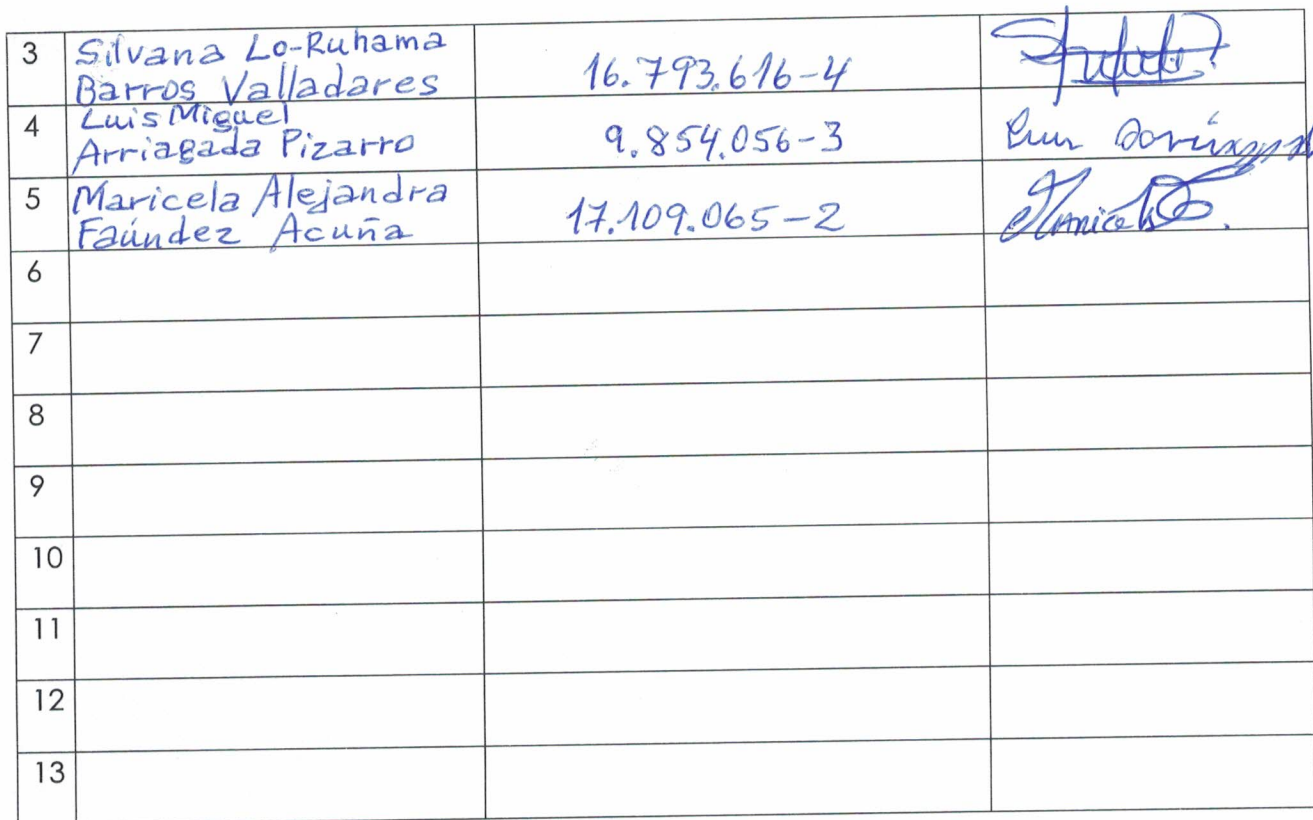 3 Silvana Lo-Ruhama
Barros Valladares 16.793.616-4
4 Luis Miguel
Arriagada Pizarro 9.854.056-3
5 Maricela Alejandra
Faúndez Acuña 17.109.065-2
6
7
8
9
10
11
12
13